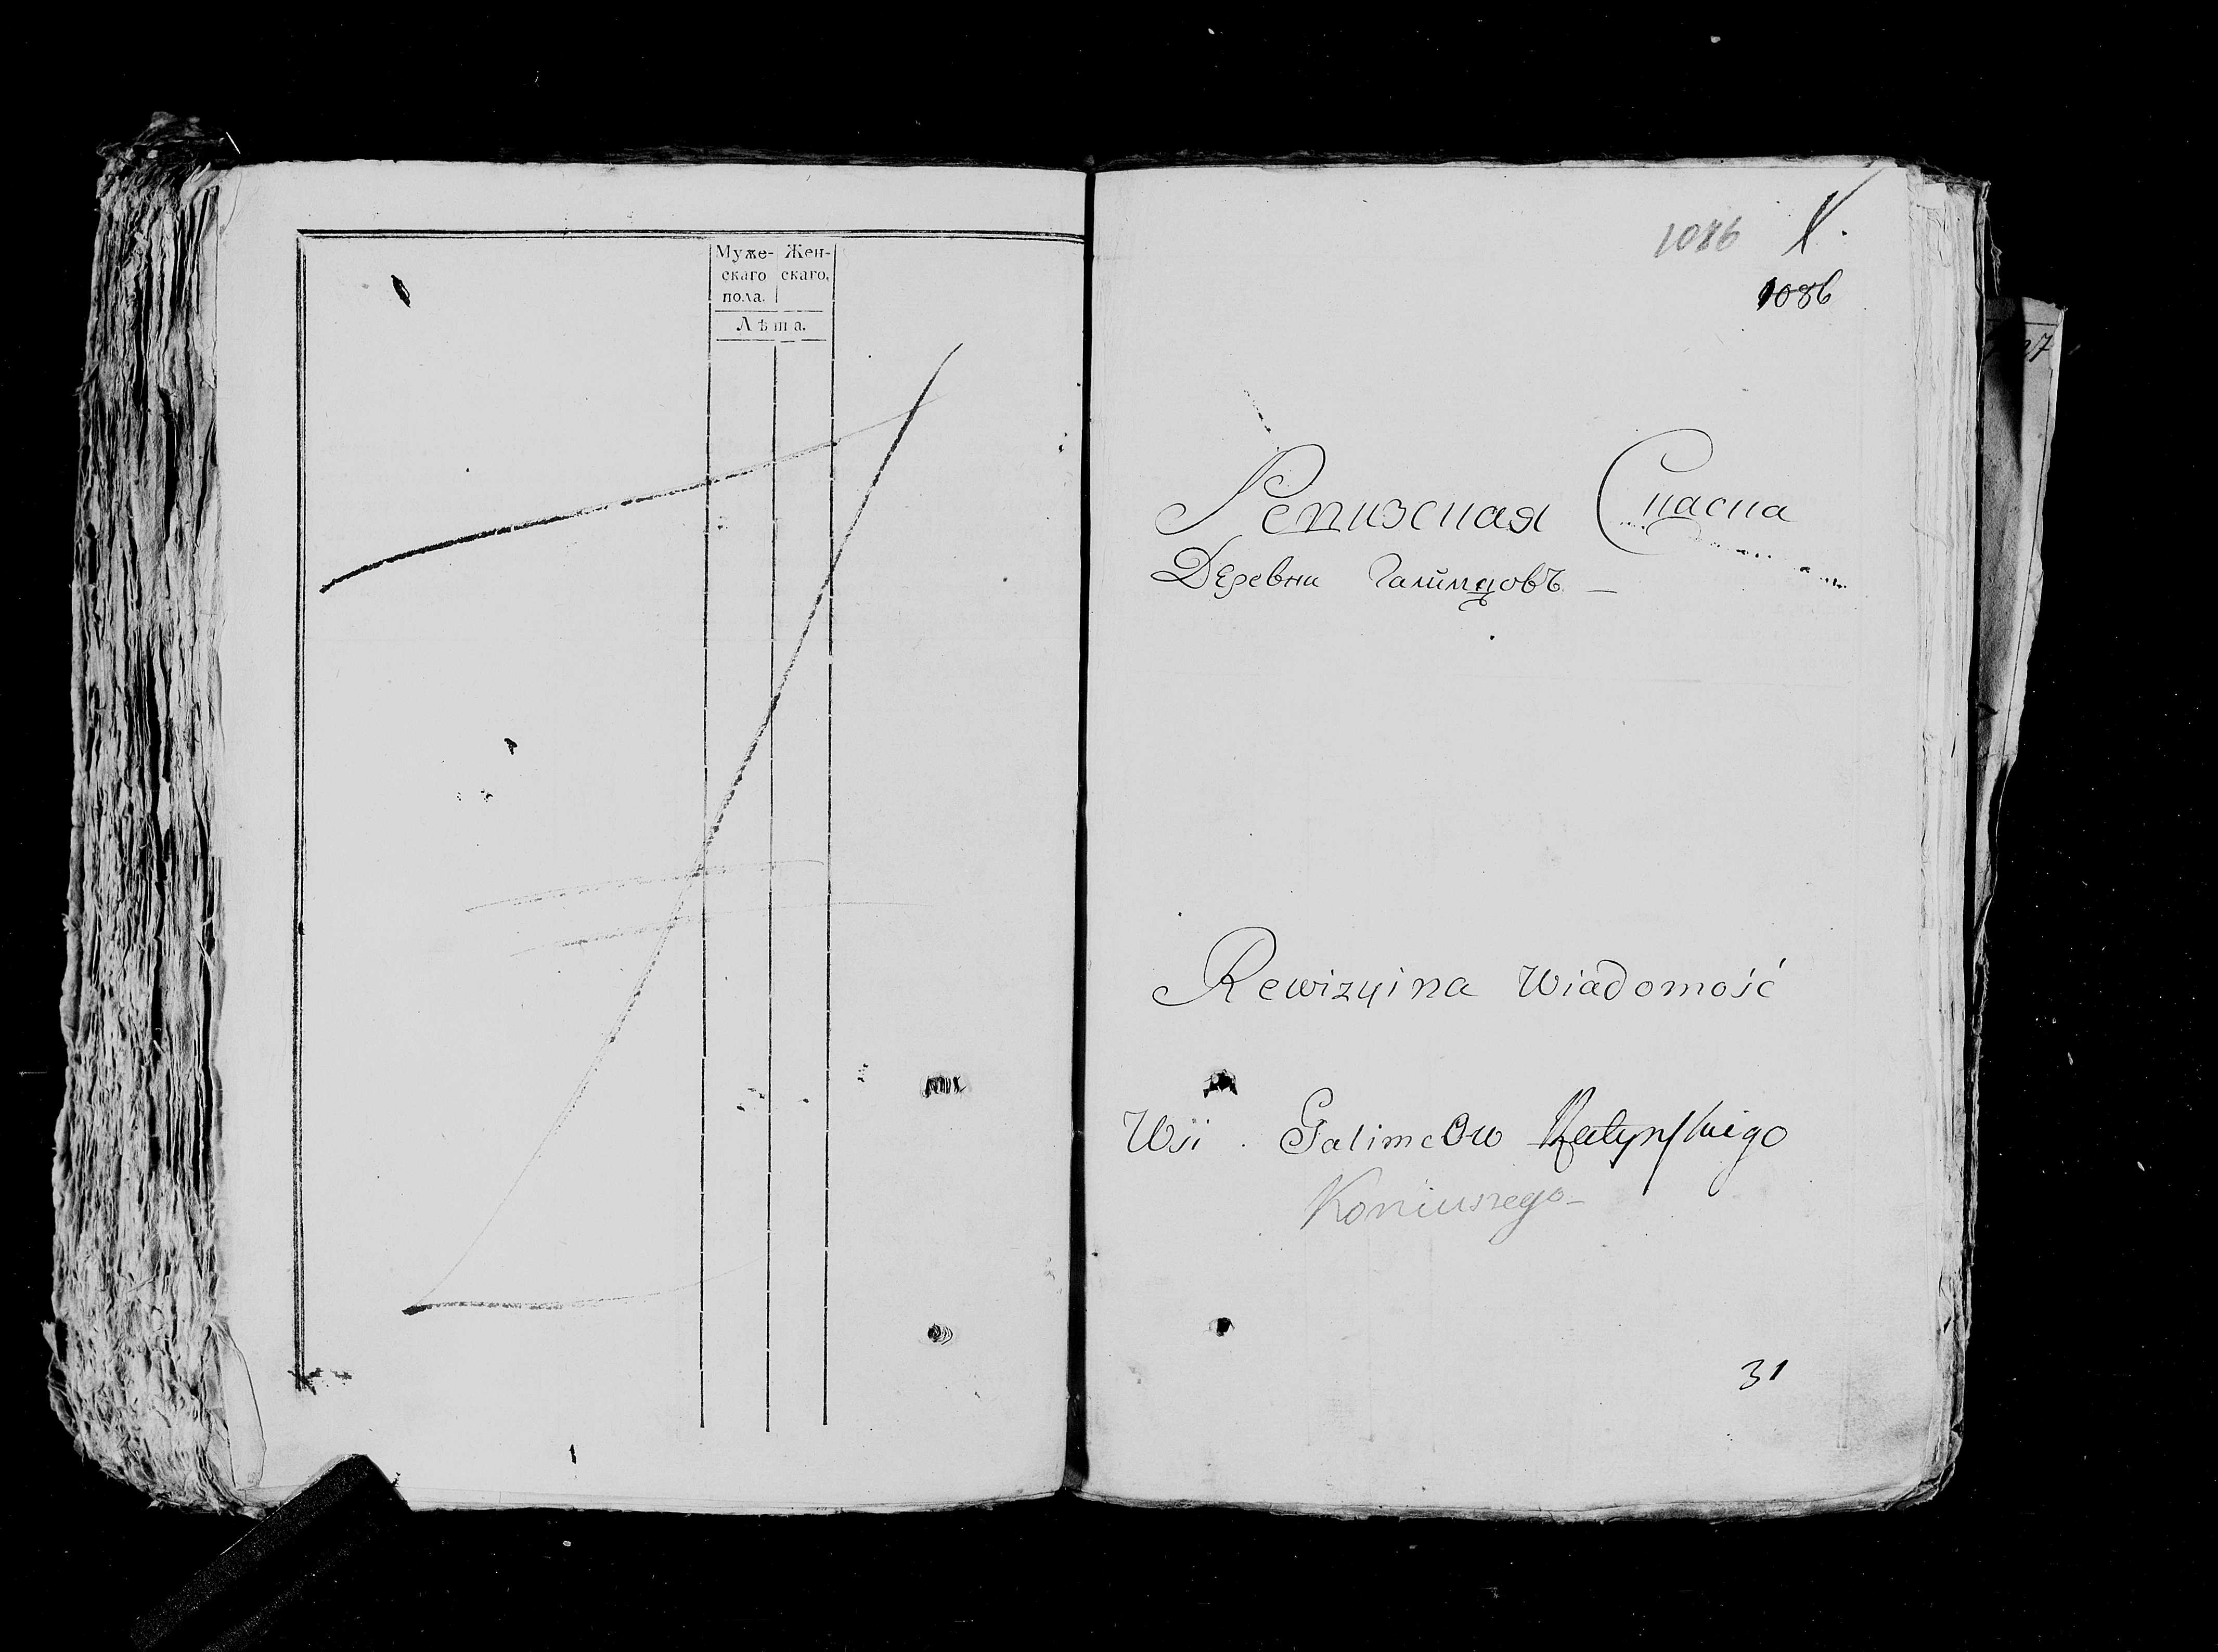 Муже- Жен-
скаго скаго.
пола.
Лѣта.
1086
1086
27
Ревизская Сказка
Деревни Галимцовъ —
Rewizyina Wiadomość
Wsi Galimcow Ratynskiego
Koniuszego-
31